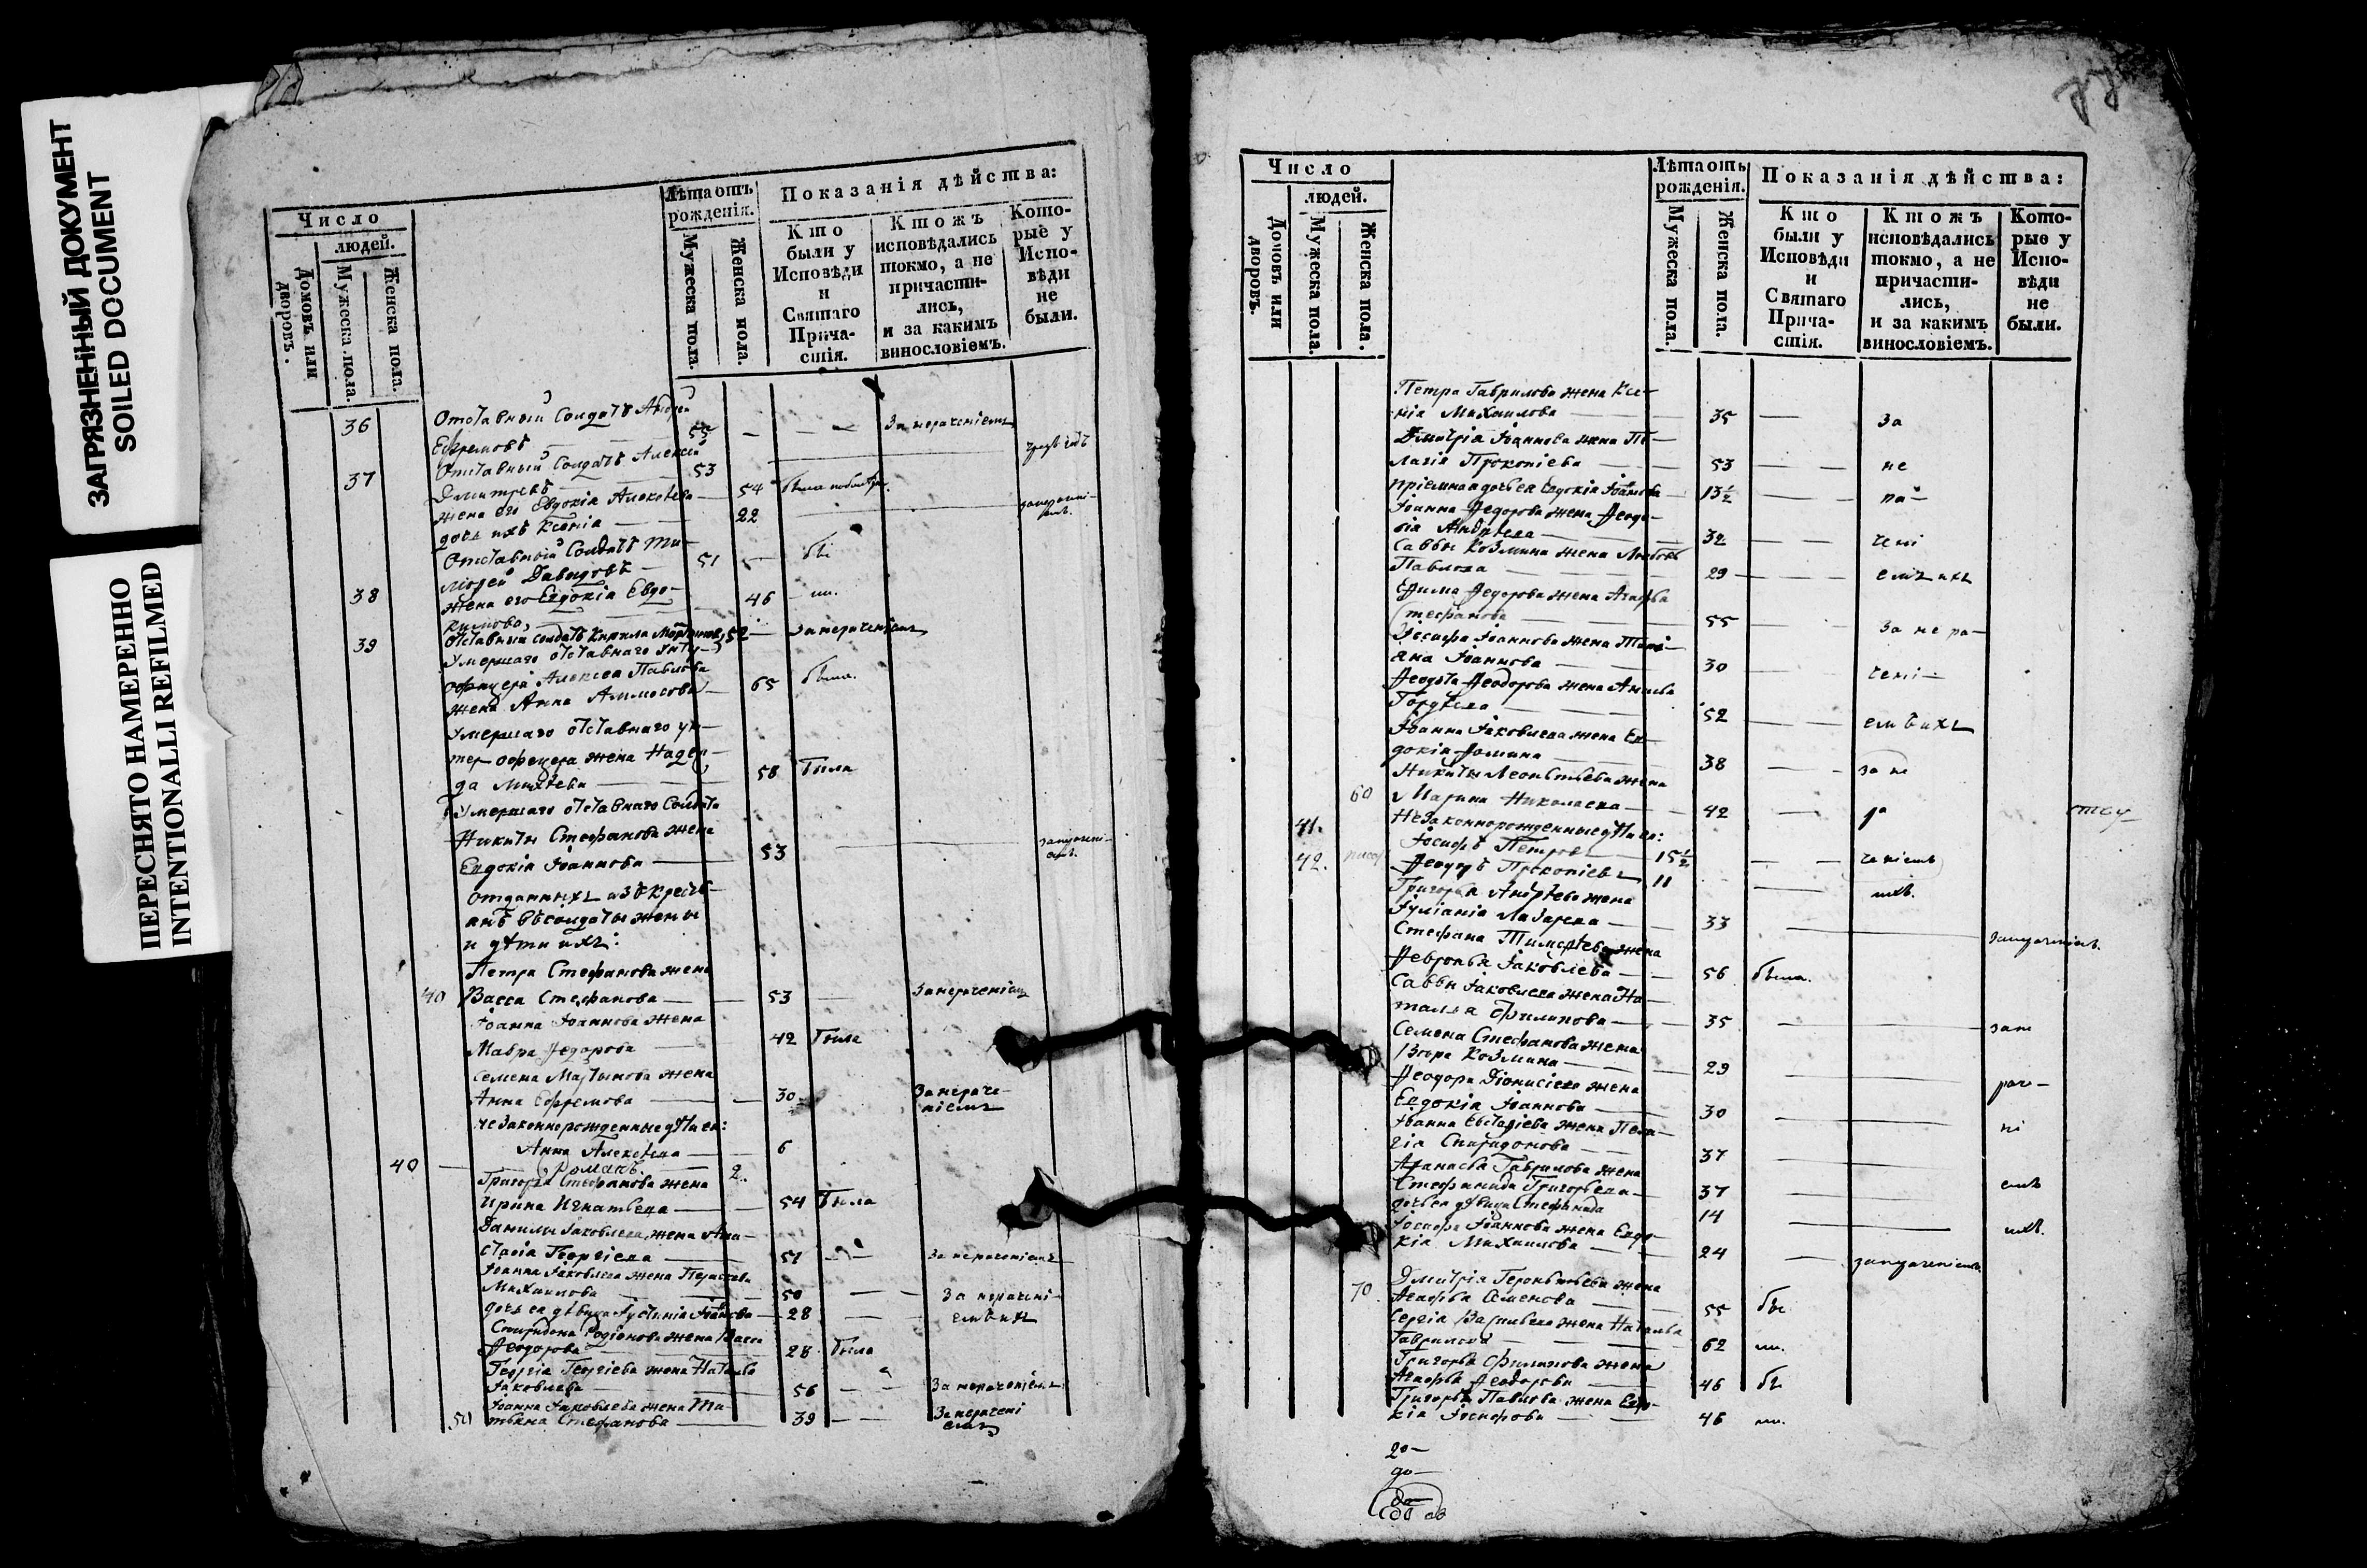 ЗАГРЯЗНЕННЫЙ ДОКУМЕНТ
SOILED DOCUMENT
ПЕРЕСНЯТО НАМЕРЕННО
INTENTIONALLI REFILMED
Число
людей.
Домовъ или дворовъ.
Мужеска пола.
Женска пола.
Лѣта отъ рожденія.
Мужеска пола.
Женска пола.
Показанія дѣйства:
Кто были у Исповѣди и Святаго Причастія.
Ктожъ исповѣдались токмо, а не причастились, и за какимъ винословіемъ.
Которые у Исповѣди не были.
36 Отставный Солдатъ Андрей
Ефремовъ 55 За нераченіемъ
37 Отставный Солдатъ Алексей
Дмитревъ 53
жена его Евдокія Алексѣева 54
дочь ихъ Ксенія 22
Отставный Солдатъ Ти-
мофей Давыдовъ 51 бы
38 жена его Евдокія Евдо-
кимова 46 ли.
39 отставный солдатъ Кирила 52 За нераченіемъ
Умершаго отставнаго Унтер
офицера Алексея Павлова
жена Анна Аммосова 65 была.
Умершаго отставнаго ун-
тер офицера жена Надеж-
да Михѣева 58 Была
Умершаго отставнаго Солдата
Никиты Стефанова жена
Евдокія Іоаннова 53
Отданныхъ изъ крестья-
анъ въ солдаты жены
и дѣти ихъ:
Петра Стефанова жена
40 Васса Стефанова 53 За нераченіемъ
Іоанна Іоаннова жена
Мавра Федорова 42 Была
Семена Мартынова жена
Анна Ефремова 30 За нераче-
ніемъ
незаконнорожденные дѣти ея:
Анна Алексѣева 6
40 Романъ 2
Григорья Стефанова жена
Ирина Игнатьева 54 Была
Данилы Іаковлева жена Ана-
стасія Георгіева 51 За нераченіемъ
Іоанна Іаковлева жена Параскева
Михаилова 50 За нерачені-
дочь ея дѣвица Іустинія Іоаннова 28 емъ ихъ
Спиридона Родіонова жена Васса
Феодорова 28 Была
Георгія Георгіева жена Наталья
Іаковлева 56 За нераченіемъ
Іоанна Іаковлева жена Та-
50 тьяна Стефанова 39 За нерачені
емъ
Число
людей.
Домовъ или дворовъ.
Мужеска пола.
Женска пола.
Лѣта отъ рожденія.
Мужеска пола.
Женска пола.
Показанія дѣйства:
Кто были у Исповѣди и Святаго Причастія.
Ктожъ исповѣдались токмо, а не причастились, и за какимъ винословіемъ.
Которые у Исповѣди не были.
Петра Гаврилова жена Ксе-
нія Михаилова 35 За
Дмитрія Іоаннова жена Пе-
лагія Прокопіева 53 не
пріемная дочь ея Евдокія Іоаннова 13½ ра-
Іоанна Федорова жена Феодо-
сія Андрѣева 32 чені
Саввы Козмина жена Любовь
Павлова 29 емъ ихъ
Ефима Федорова жена Агафья
Стефанова 55 За не ра-
Іосифа Іоаннова жена Тать-
яна Іоаннова 30 чені-
Феодота Феодорова жена Анисья
Гордѣева 52 емъ ихъ
Іоанна Іаковлева жена Ев-
докія Фомина 38 за не
Никиты Леонтьева жена
60 Марина Николаева 42 ра
41. Незаконнорожденные дѣти ея:
Іосифъ Петровъ 15½ ченіемъ
42. Феодоръ Прокопіевъ 11 ихъ.
Григорья Андрѣева жена
Іуліанія Лазарева 33
Стефана Тимофѣева жена
Февронья Іаковлева 56 была.
Саввы Іаковлева жена На-
талья Филипова 35 зане
Семена Стефанова жена
Козмина 29 раче-
Феодора Діонисіева жена
Евдокія Іоаннова 30 ні
Іоанна Евстафіева жена Пела-
гія Спиридонова 37 емъ
Афанасья Гаврилова жена
Стефанида Григорьева 37
дочь ея дѣвица Стефанида 14 ихъ.
Іосифа Іоаннова жена Евдо-
кія Михаилова 24 занераченіемъ.
Дмитрія Терентьева жена
70 Агафья Семенова 55 бы
Сергія Васильева жена Наталья
Гаврилова 62 ли.
Григорья Филипова жена
Агафья Феодорова 46 бы
Григорья Павлова жена Евдо-
кія Іосифова 46 ли.